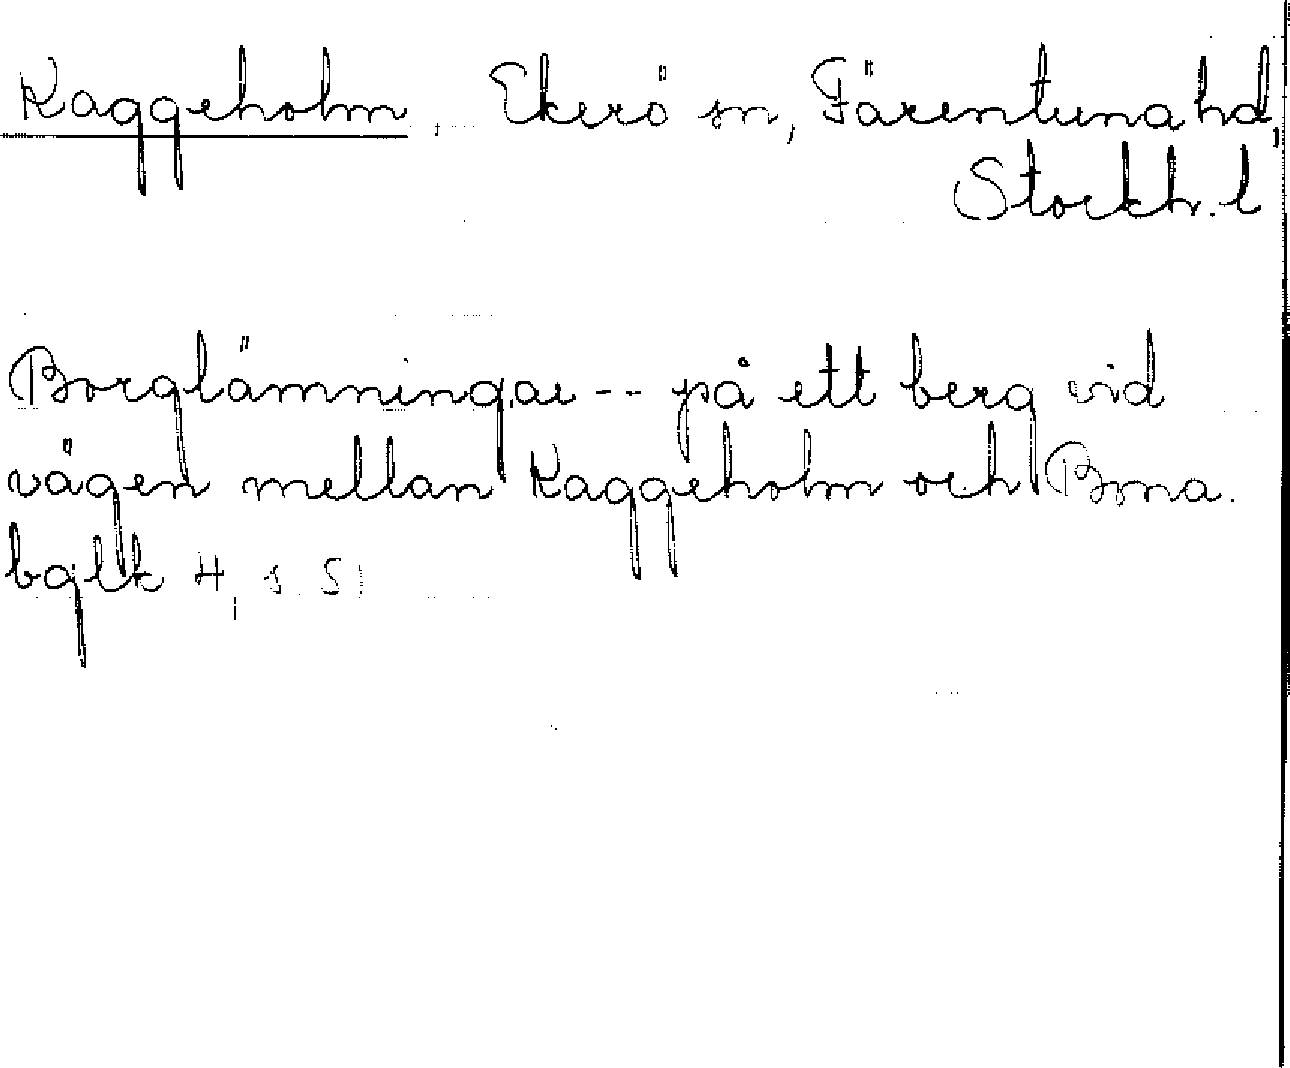 Kaggeholm, Ekerö sn, Färentuna hd,
Stockh. l
Borglämningar -- på ett berg vid
vägen mellan Kaggeholm och
bglk 4, s 5